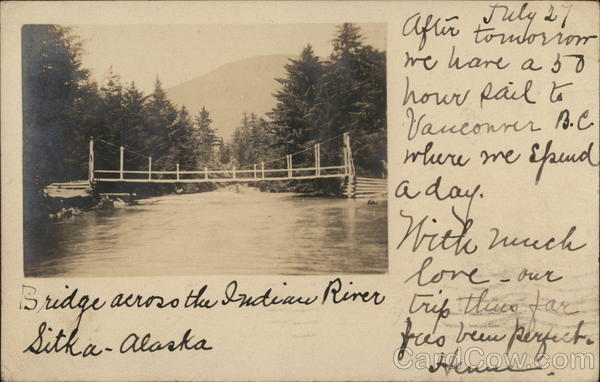 July 27
After tomorrow
we have a 50
hour sail to
Vancouver B.C.
where we spend
a day.
With much
love - our
trip thus far
has been perfect.
Bridge across the Indian River
Sitka - Alaska
CardCow.com